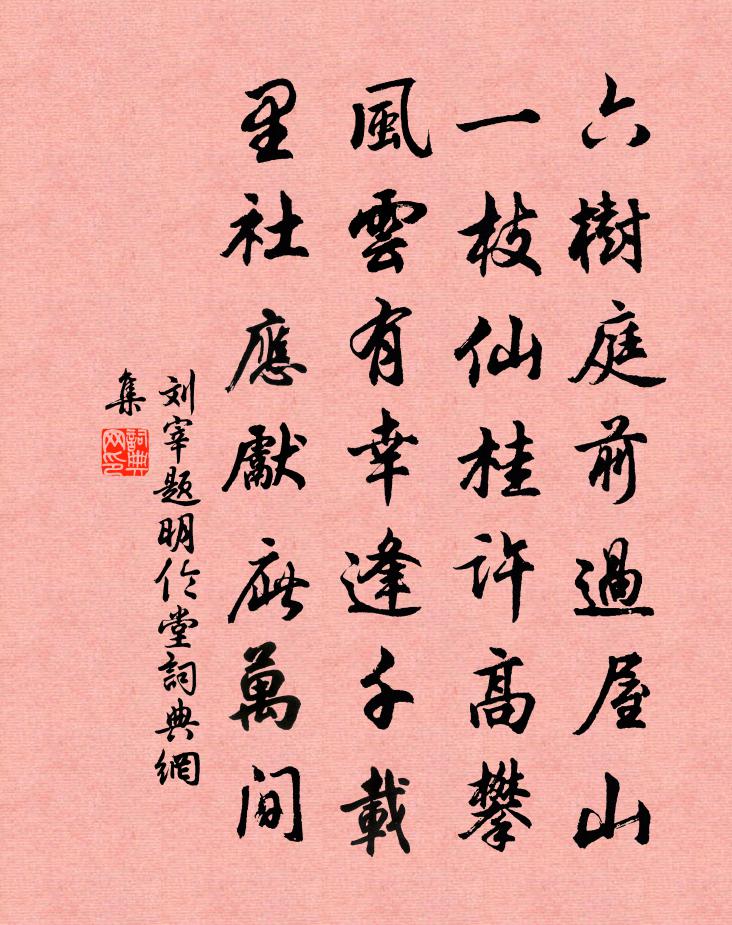 六樹庭前過屋山
一枝仙桂許高攀
風雲有幸逢千載
里社應獻庇萬間
刘宰题明伦堂詞典網
集
詞典网印